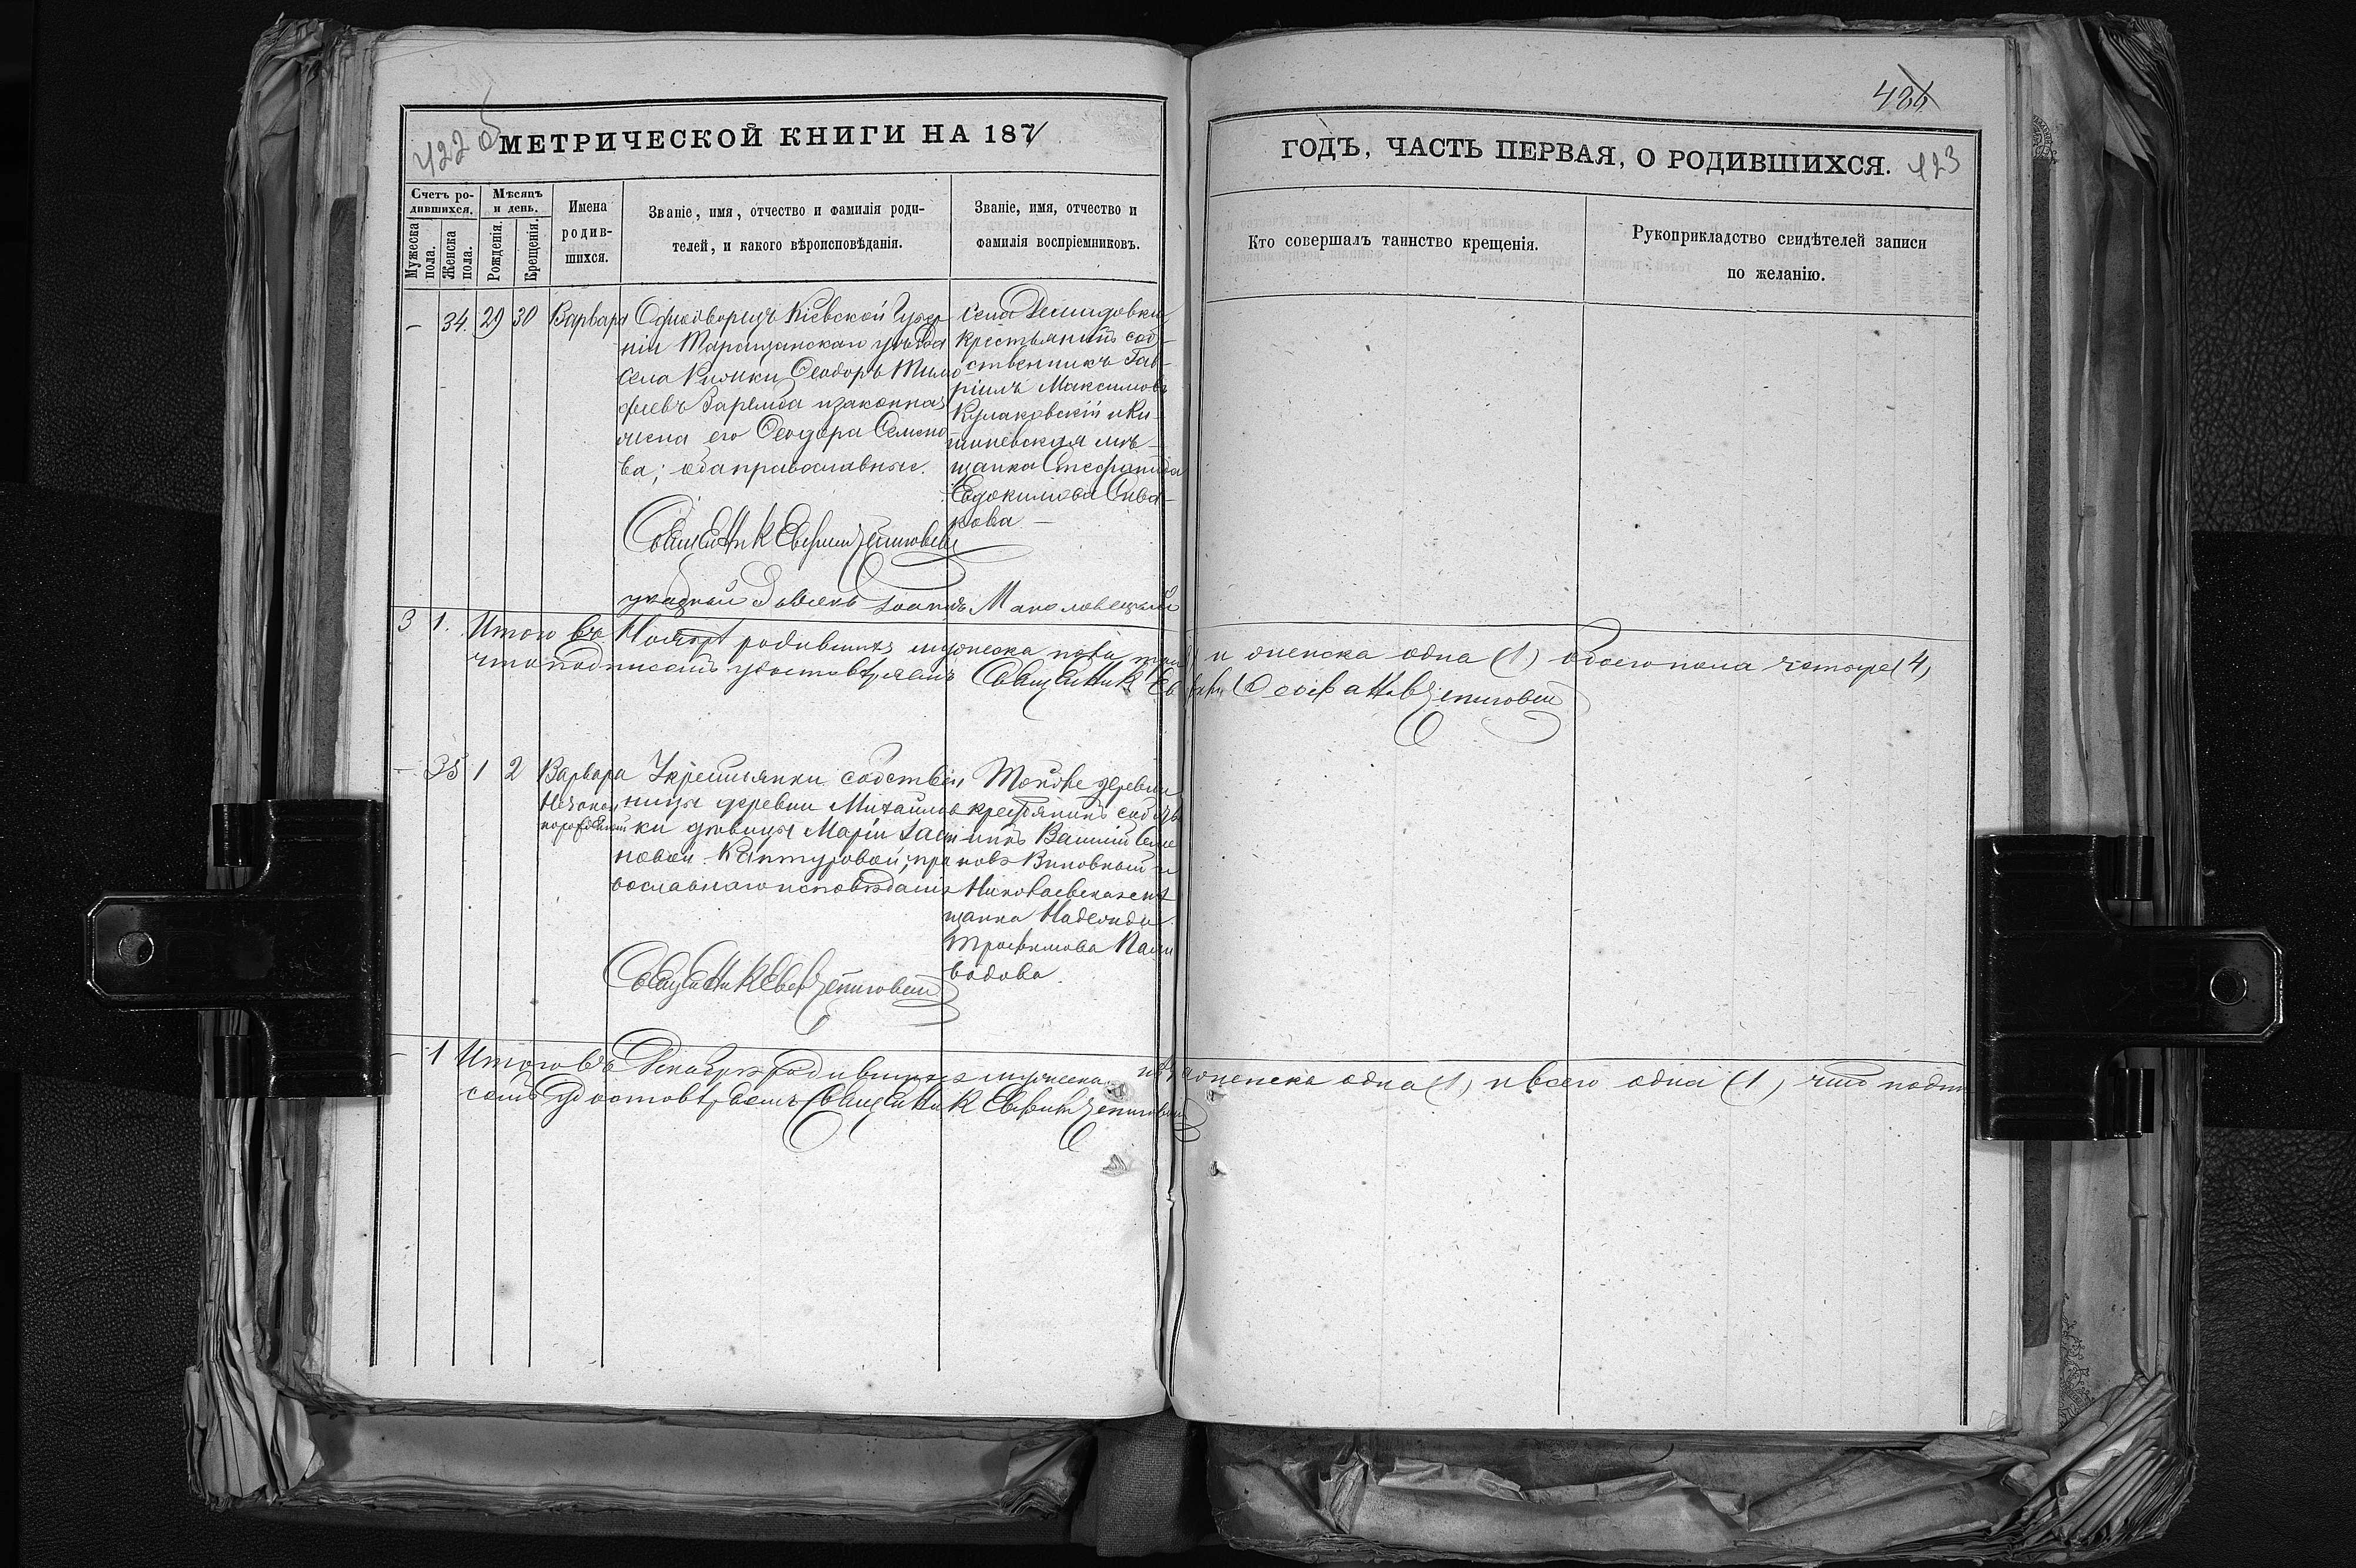 422 об
МЕТРИЧЕСКОЙ КНИГИ НА 1871
Счетъ родившихся.
Мужеска пола.
Женска пола.
Мѣсяцъ и день.
Рожденія.
Крещенія.
Имена родившихся.
Званіе, имя, отчество и фамилія родителей, и какого вѣроисповѣданія.
Званіе, имя, отчество и фамилія воспріемниковъ.
— 34. 29 30 Варвара
Однодворецъ Кіевской Губер
ніи Таращанскаго уѣзда
села Ѳеодоръ Тимо
феевъ Заремба и законная
жена его Ѳеодора Семено
ва; оба православные.
Села Демидовки
крестьянинъ соб-
ственникъ Гав-
ріилъ Максимовъ
Кулаковскій и Ки-
шиневская мѣ-
щанка Стефанида
Евдокимова Сива-
кова —
Священник
указный Іоаннъ
3 1. Итого въ Ноябрѣ родившихъ мужеска пола три и женска одна (1) обоего пола четыре (4)
что подписомъ удостовѣряемъ Священник
— 35 1 2 Варвара
Незакон
порожден
У крестьянки собствен
ницы деревни Михайлов
ки дѣвицы Маріи
новой Каптуровой, пра
вославнаго исповѣданія
Тойже деревни
крестьянинъ собств
никъ Василій Семе
новъ и
Николаевская мѣ
щанка Надежда
Трофимова
водова.
Священник
— 1 Итого въ Декабрѣ родившихся мужеска женска одна (1) и всего одна (1) что подпи
сомъ удостовѣряемъ Священник
ГОДЪ, ЧАСТЬ ПЕРВАЯ, О РОДИВШИХСЯ.
423
Кто совершалъ таинство крещенія.
Рукоприкладство свидѣтелей записи по желанію.